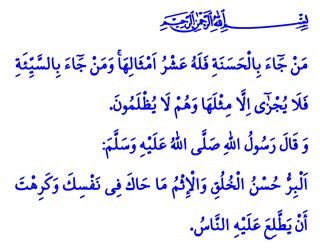 بِسْمِ اللهِ الرَّحْمٰنِ الرَّحِيمِ
مَنْ جَٓاءَ بِالْحَسَنَةِ فَلَهُ عَشْرُ اَمْثَالِهَاۚ وَمَنْ جَٓاءَ بِالسَّيِّئَةِ
فَلَا يُجْزٰٓى اِلَّا مِثْلَهَا وَهُمْ لَا يُظْلَمُونَ.
وَ قَالَ رَسُولُ اللهِ صَلَّى اللهُ عَلَيْهِ وَسَلَّمَ:
اَلْبِرُّ حُسْنُ الْخُلُقِ وَالْإِثْمُ مَا حَاكَ فِى نَفْسِكَ وَكَرِهْتَ
أَنْ يَطَّلِعَ عَلَيْهِ النَّاسُ.